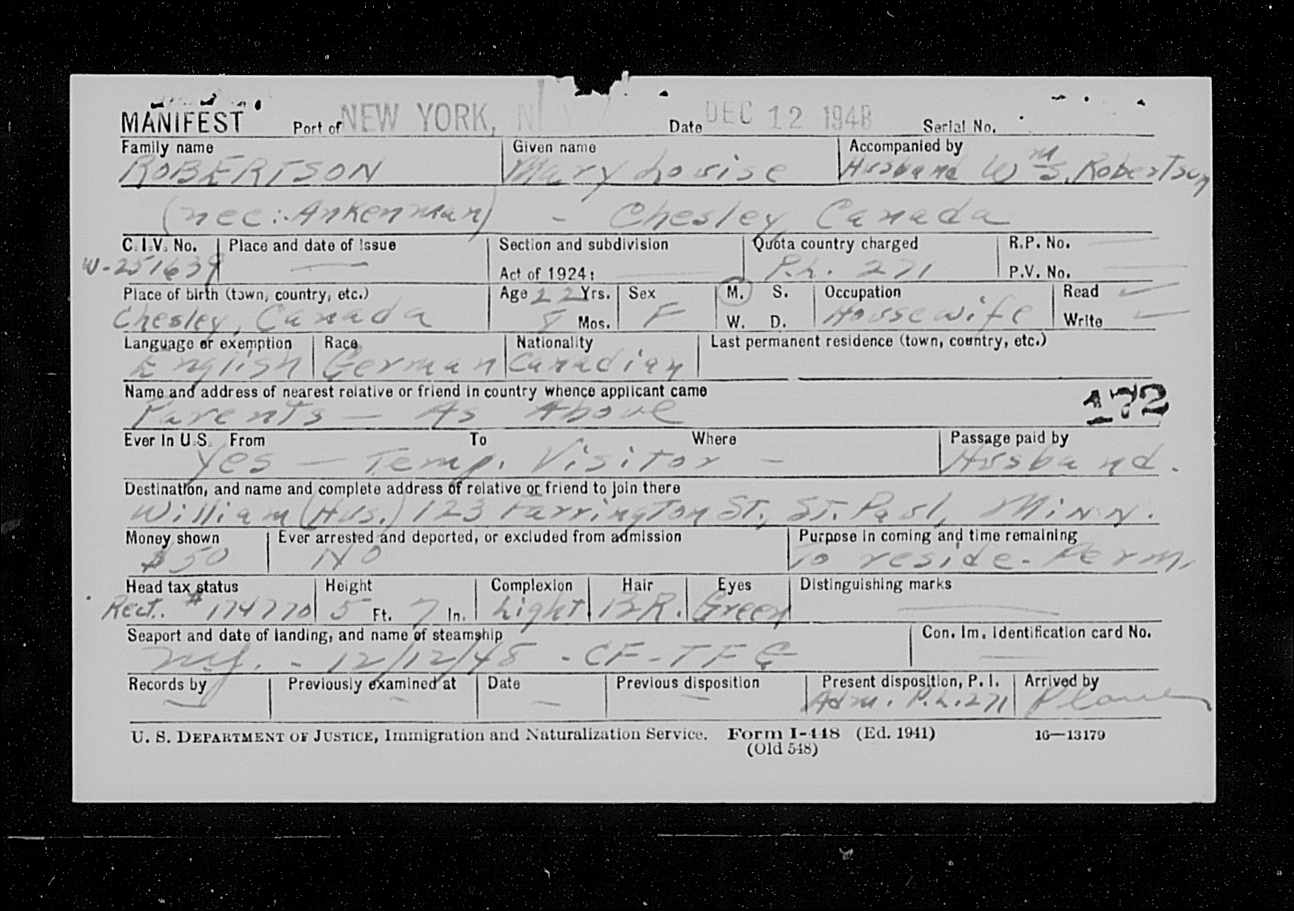 MANIFEST Port of NEW YORK, N Date DEC 12 1948 Serial No.
Family name Given name Accompanied by
ROBERTSON Mary Louise Husband Wm S. Robertson
(nee: Ankenman) - Chesley, Canada
C. I. V. No. Place and date of issue Section and subdivision Quota country charged R. P. No.
W-251639 Act of 1924: P.L. 271 P. V. No.
Place of birth (town, country, etc.) Age 22 Yrs. Sex M. S. Occupation Read ✓
Chesley, Canada 8 Mos. F W. D. Housewife Write ✓
Language or exemption Race Nationality Last permanent residence (town, country, etc.)
English German Canadian
Name and address of nearest relative or friend in country whence applicant came
Parents - As Above 172
Ever in U.S. From To Where Passage paid by
Yes - Temp. Visitor - Husband.
Destination, and name and complete address of relative or friend to join there
William (Hus.) 123 Farrington St., St. Paul, Minn.
Money shown Ever arrested and deported, or excluded from admission Purpose in coming and time remaining
$50 NO To reside - Perm.
Head tax status Height Complexion Hair Eyes Distinguishing marks
Rect. # 174770 5 Ft. 7 In. Light BR. Green
Seaport and date of landing, and name of steamship Con. Im. Identification card No.
- 12/12/48 - CF-TFE
Records by Previously examined at Date Previous disposition Present disposition, P. I. Arrived by
Adm. P.L.271 Plane
U. S. DEPARTMENT OF JUSTICE, Immigration and Naturalization Service. Form I-448 (Ed. 1941) 16—13179
(Old 548)